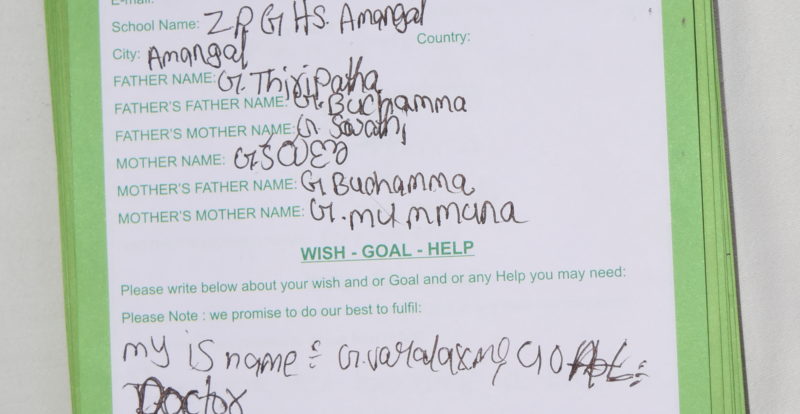 E-mail:
School Name: Z P G HS. Amangal
City: Amangal Country:
FATHER NAME: G. Thiripatha
FATHER'S FATHER NAME: G. Buchamma
FATHER'S MOTHER NAME: G. Swathi
MOTHER NAME: G
MOTHER'S FATHER NAME: G Buchamma
MOTHER'S MOTHER NAME: G.
WISH - GOAL - HELP
Please write below about your wish and or Goal and or any Help you may need:
Please Note : we promise to do our best to fulfil:
my is name : G. varalaxmi
Doctor